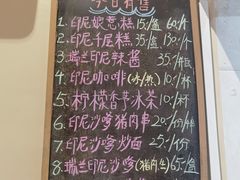 今日有售
1.印尼娘惹糕15/盒 60/个
2.印尼千层糕35/盒 130/个
3.瑞兰印尼辣酱 35/瓶
4.印尼咖啡(冰/热)10/杯
5.柠檬香茅冰茶 10/杯
6.印尼沙嗲猪肉串 20/份
7.印尼沙嗲炒面 25/份
8.瑞兰印尼沙嗲(猪肉) 65/盒